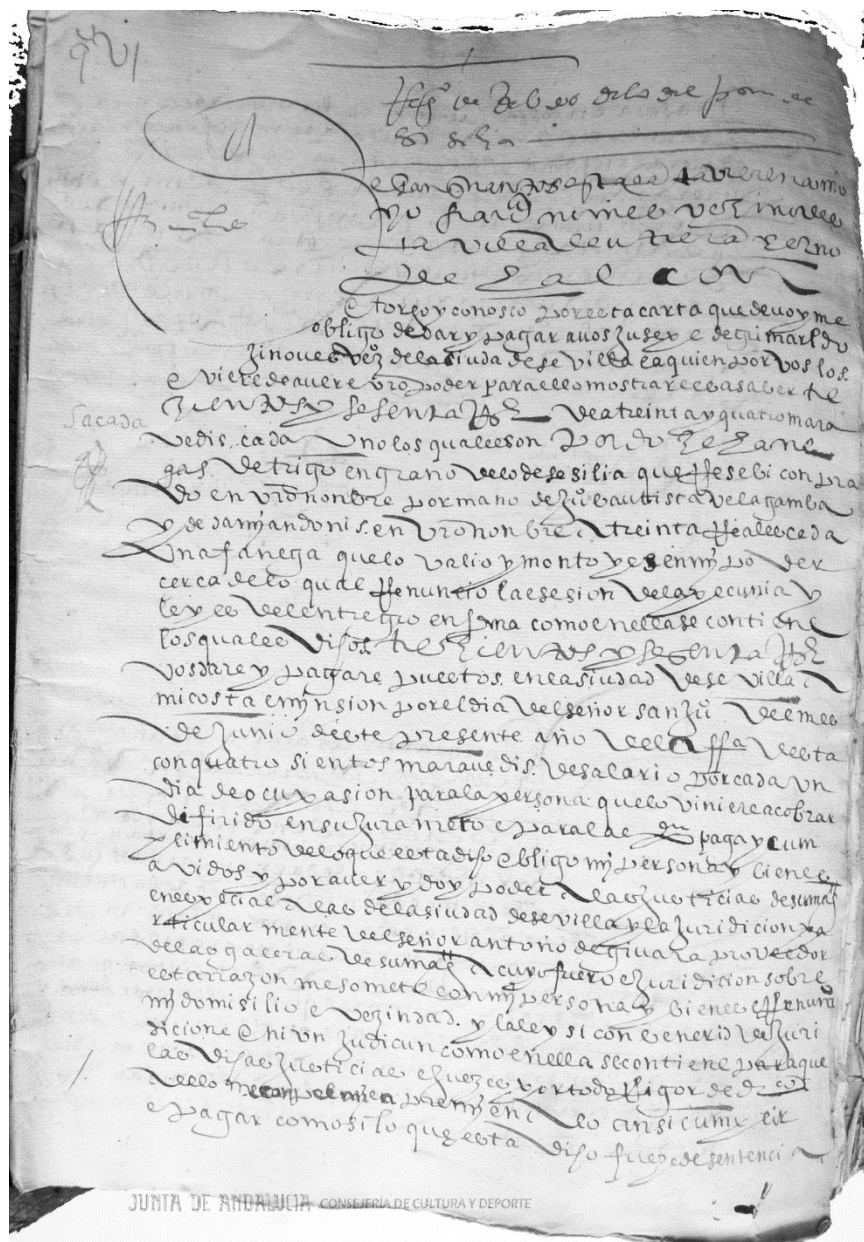 q VI
de lo del pan de
sesilia
quantos esta carta vieren como
yo nuñes vezino de
la villa de utrera yerno
de galeon
otorgo y conosco por esta carta que devo y me
obligo de dar y pagar a vos de gimar
vezº de la siuda de se villa e a quien por vos los
e viere de aver e vro poder para ello mostrare es a saber tre
zientos y sesenta Rs de a treinta y quatro mara
Sacada
vedis cada uno los quales son por doze hane
gas de trigo en grano de lo de sesilia que Resebi conpra
do en vro nonbre por mano de juº bautista de la ganba
y de en vro nonbre a treinta Reales cada
una fanega que lo valio y monto y es en my poder
cerca de lo qual Renuncio la esesion de la pecunia y
leyes del entrego en forma como en ellas se contiene
los quales dhos trezientos y sesenta Rs
vos dare y pagare puestos en la siudad de se villa a
mi costa e minsion por el dia del señor san juº del mes
de junio deste presente año de la ffa desta
con quatro sientos maravedis de salario por cada un
dia de ocupasion para la persona que lo viniere a cobrar
difirido en su juramento e para la paga y cum
plimiento de lo que esta dho obligo my persona y bienes
avidos y por aver y doy poder a las justicias de su magt
en especial a las de la siudad de se villa y la juridicion pa
rticular mente del señor antonio de givara proveedor
de las galeras de su magt a cuyo fuero e juridicion sobre
esta rrazon me someto con my persona y bienes e Renunº
my domisilio e vezindad y la ley si convenerid de juri
dicione onivn judicun como en ella se contiene para que
las dhas justicias e juezes por todo Rigor de dº
dello me conpelan e apremyen a lo ansi cumplir
e pagar como si lo que esta dho fuese de sentencia
JUNTA DE ANDALUCIA CONSEJERÍA DE CULTURA Y DEPORTE